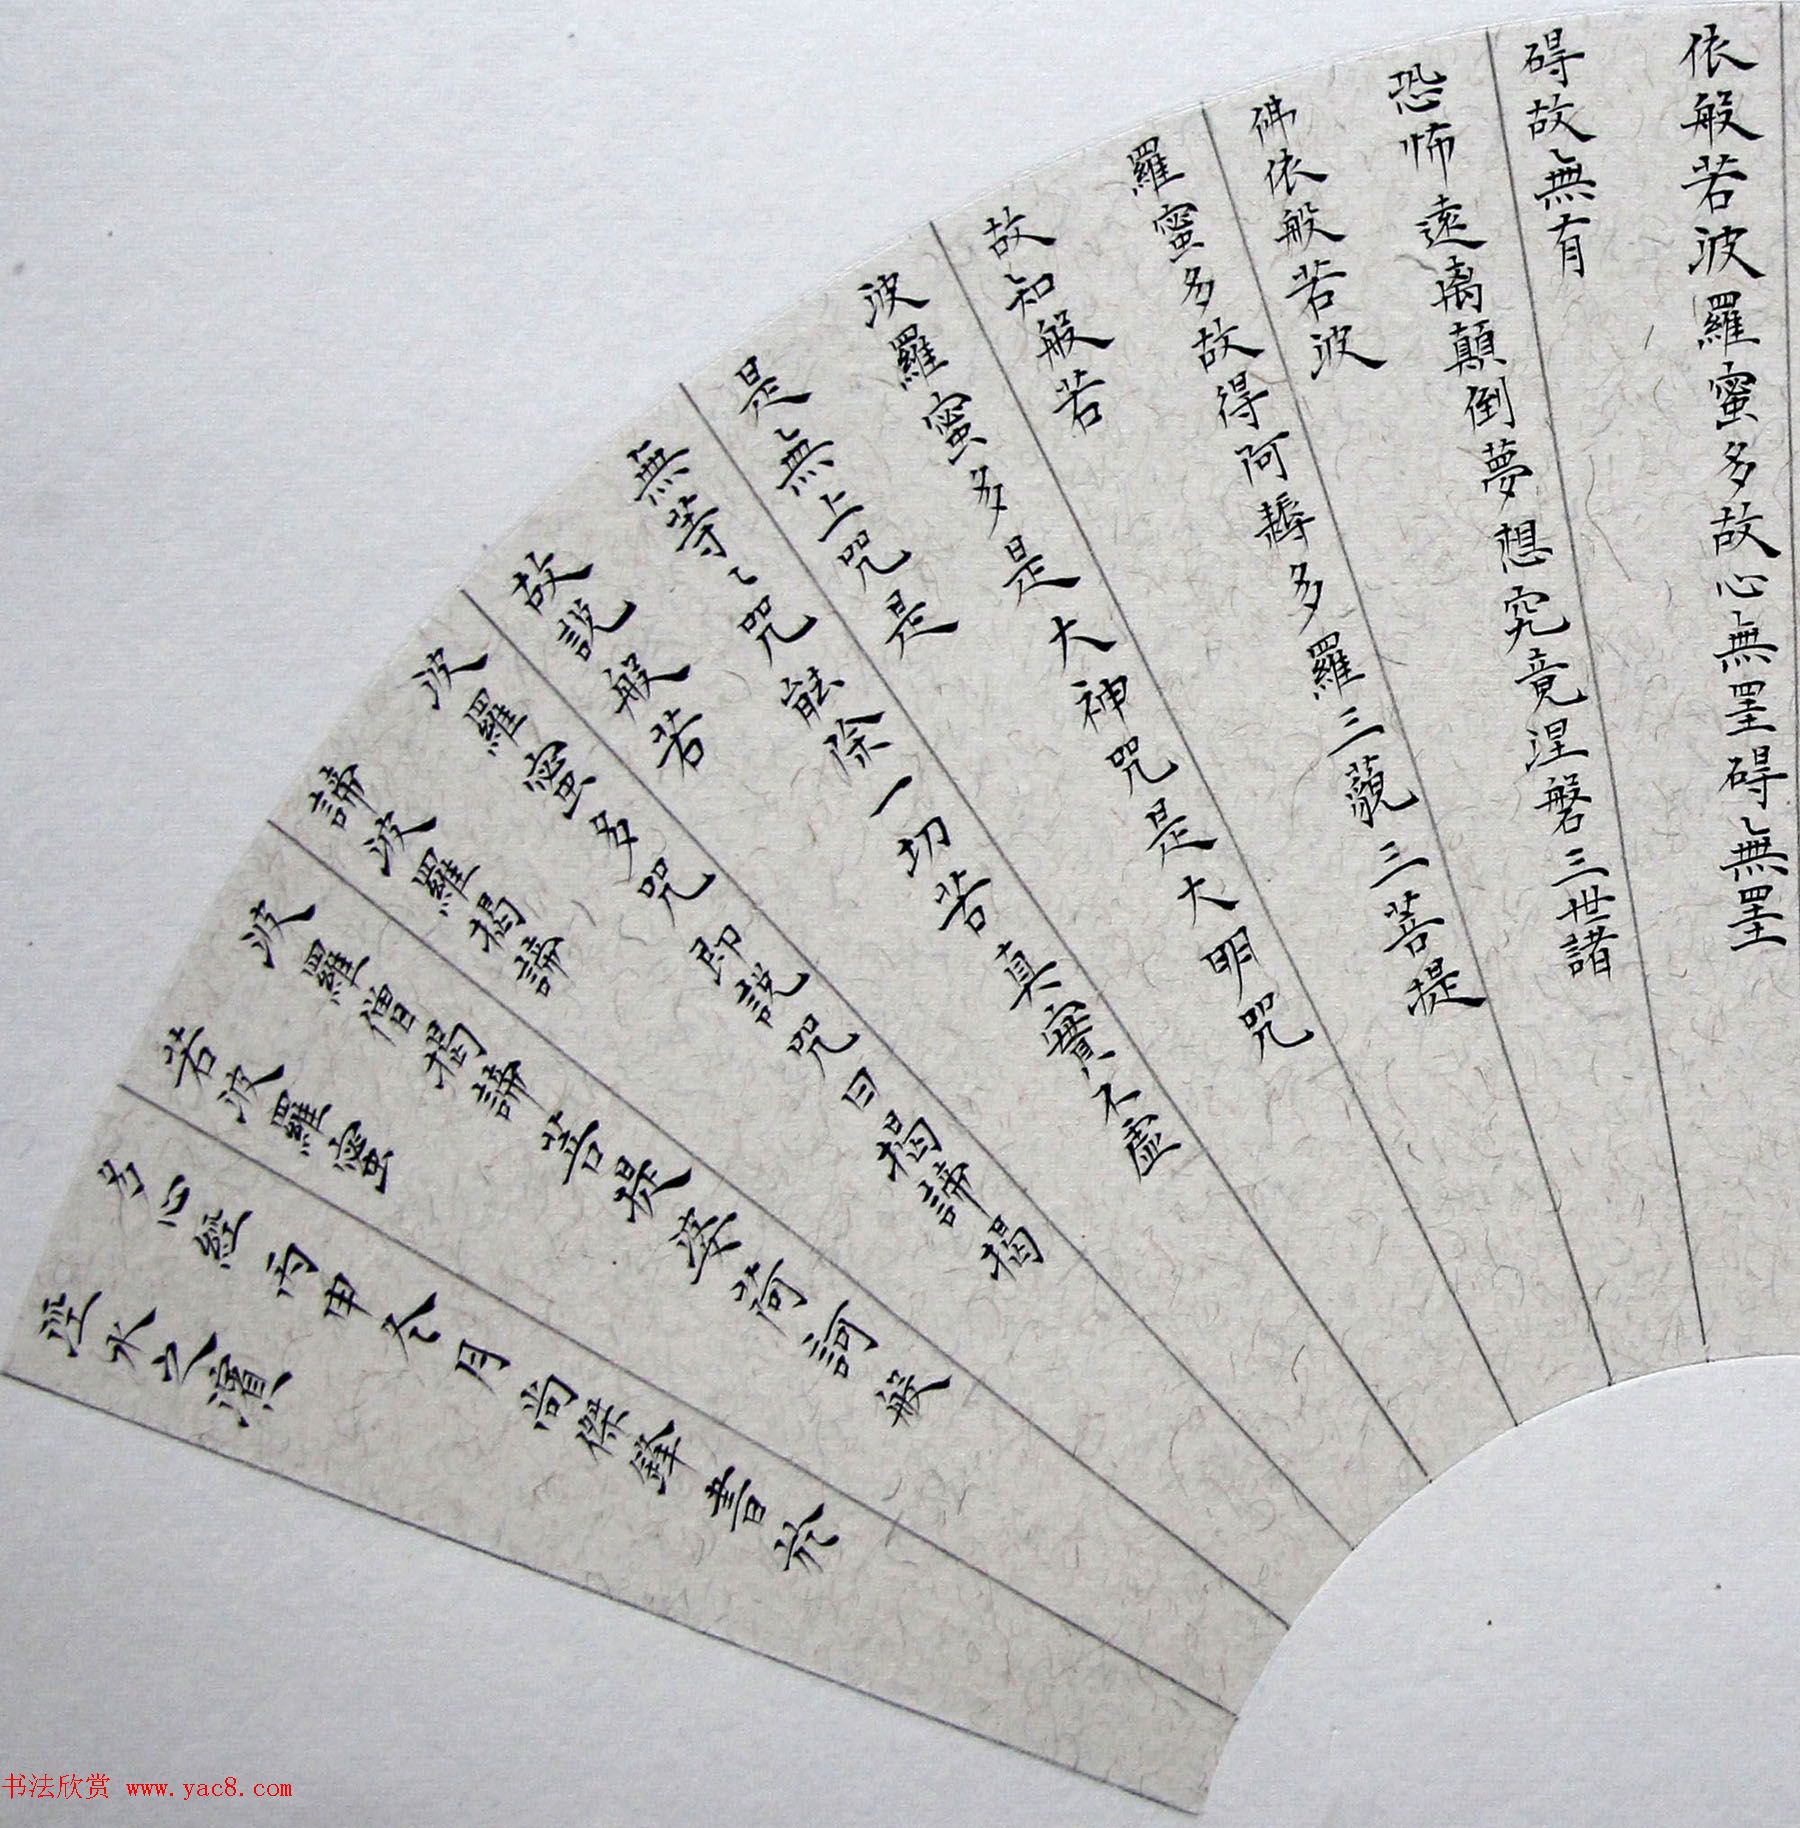 依般若波羅蜜多故心無罣碍無罣
碍故無有
恐怖遠离顛倒夢想究竟涅磐三世諸
佛依般若波
羅蜜多故得阿耨多羅三藐三菩提
故知般若
波羅蜜多是大神咒是大明咒
是無上咒是
無等〻咒能除一切苦真實不虛
故説般若
波羅蜜多咒即說咒曰揭諦揭
諦波羅揭諦
波羅僧揭諦菩提娑訶般
若波羅蜜
多心經丙申冬月尚傑敬書於
涇水之濱
书法欣赏 www.yac8.com